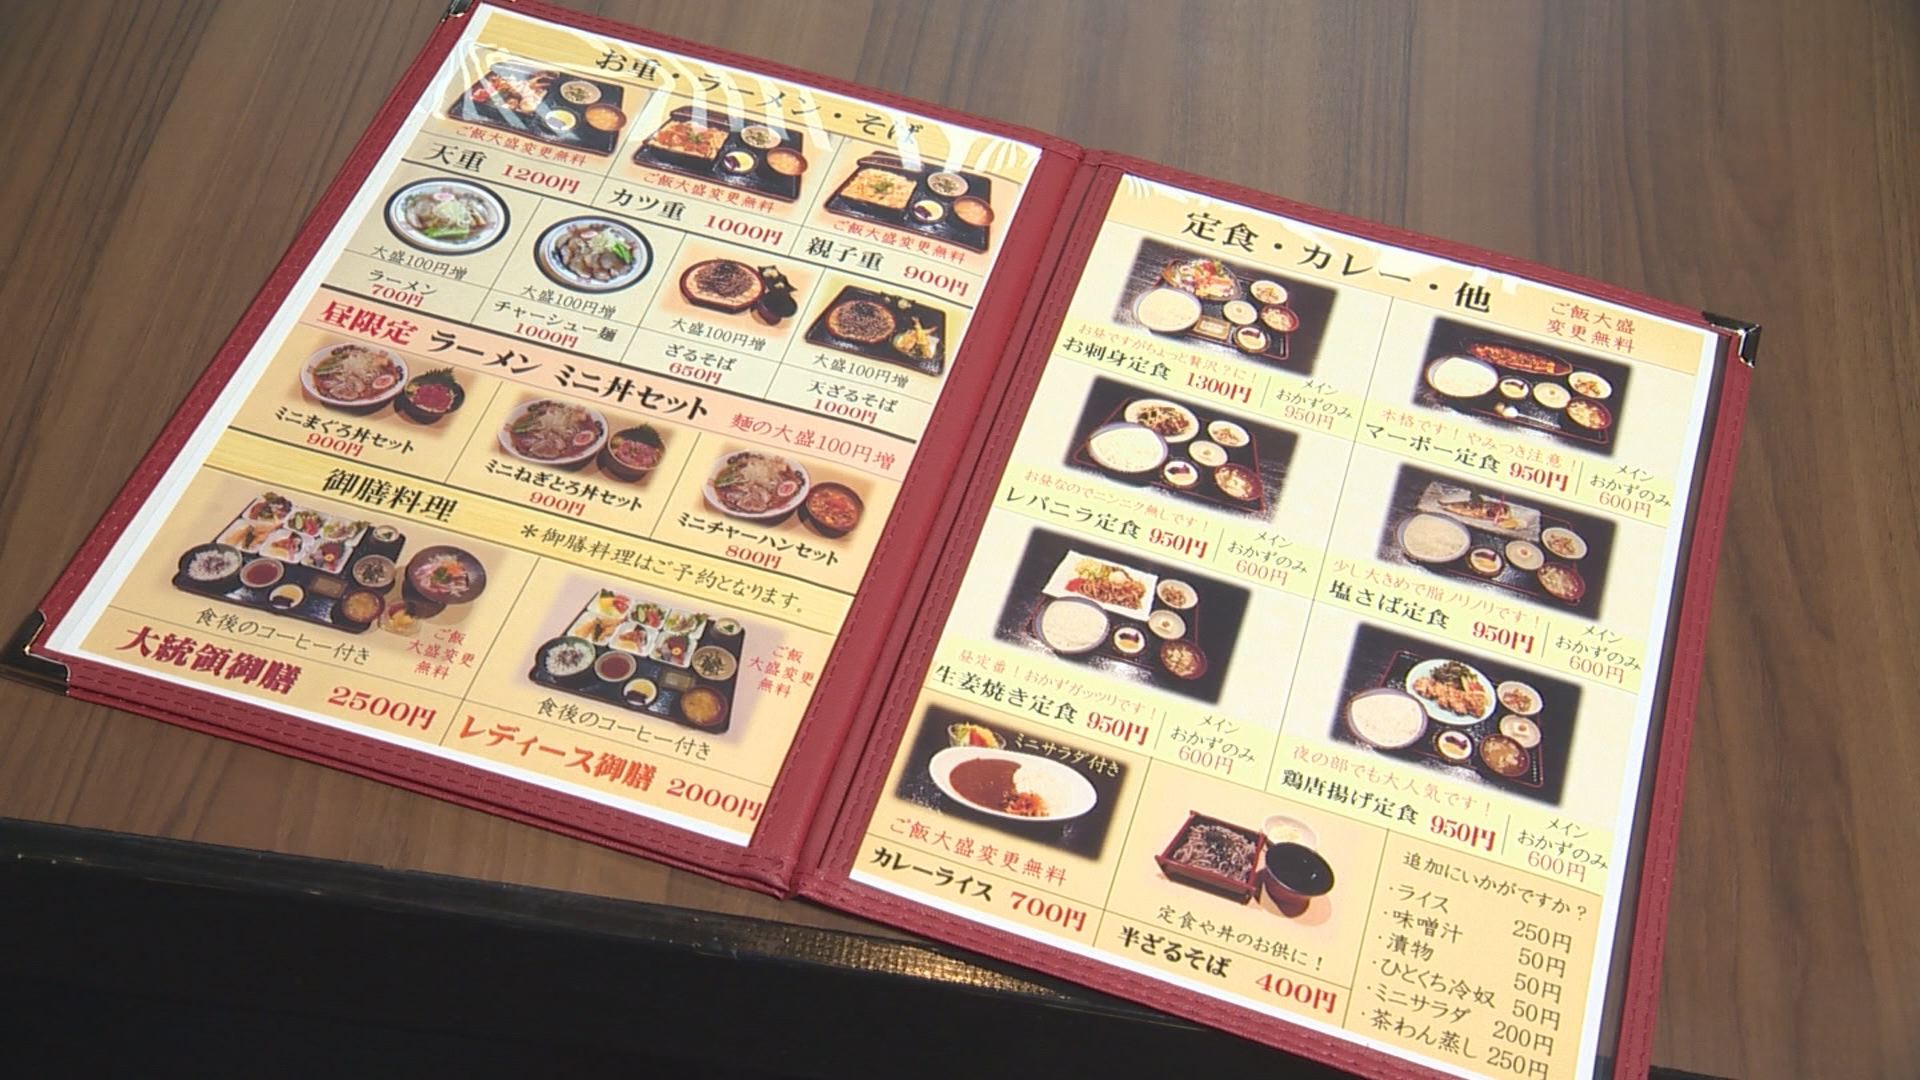 お重・ラーメン・そば
ご飯大盛変更無料
天重 1200円
ご飯大盛変更無料
カツ重 1000円
ご飯大盛変更無料
親子重 900円
大盛100円増
ラーメン
700円
大盛100円増
チャーシュー麺
1000円
大盛100円増
ざるそば
650円
大盛100円増
天ざるそば
1000円
昼限定 ラーメン ミニ丼セット 麺の大盛100円増
ミニまぐろ丼セット
900円
ミニねぎとろ丼セット
900円
ミニチャーハンセット
800円
御膳料理 *御膳料理はご予約となります。
食後のコーヒー付き
ご飯
大盛変更
無料
大統領御膳 2500円
食後のコーヒー付き
ご飯
大盛変更
無料
レディース御膳 2000円
定食・カレー・他
ご飯大盛
変更無料
お昼ですがちょっと贅沢?に!
お刺身定食 1300円
メイン
おかずのみ
950円
本格です!やみつき注意!
マーボー定食 950円
メイン
おかずのみ
600円
お昼なのでニンニク無しです!
レバニラ定食 950円
メイン
おかずのみ
600円
少し大きめで脂ノリノリです!
塩さば定食 950円
メイン
おかずのみ
600円
昼定番!おかずガッツリです!
生姜焼き定食 950円
メイン
おかずのみ
600円
夜の部でも大人気です!
鶏唐揚げ定食 950円
メイン
おかずのみ
600円
ミニサラダ付き
ご飯大盛変更無料
カレーライス 700円
定食や丼のお供に!
半ざるそば 400円
追加にいかがですか?
・ライス 250円
・味噌汁 50円
・漬物 50円
・ひとくち冷奴 50円
・ミニサラダ 200円
・茶わん蒸し 250円